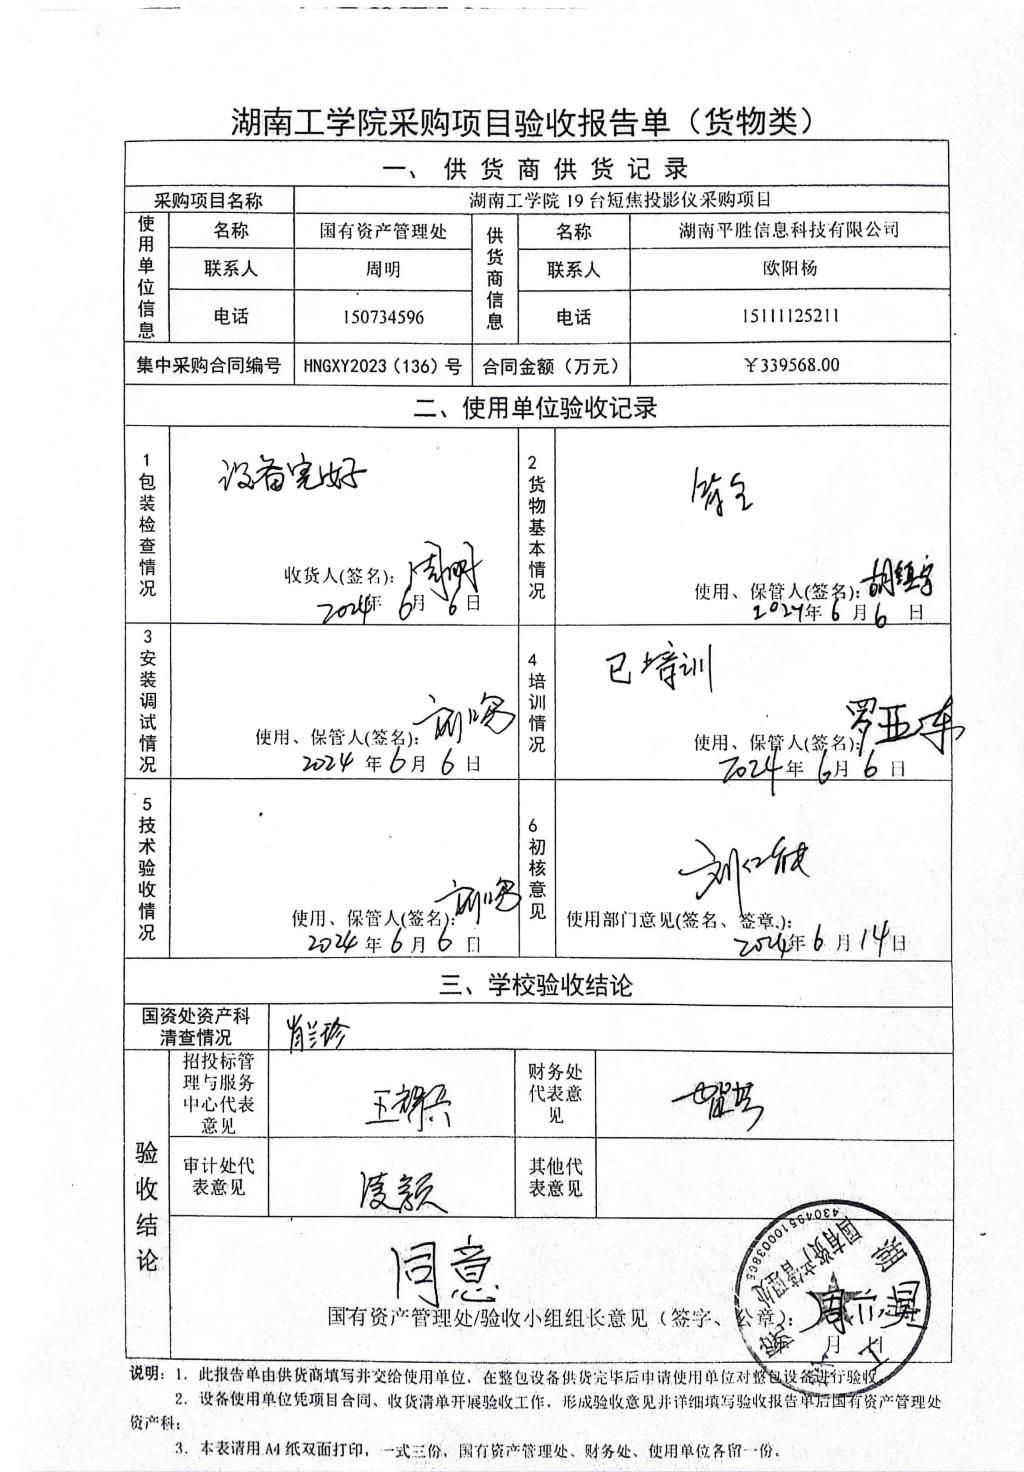 湖南工学院采购项目验收报告单（货物类）
一、供货商供货记录
采购项目名称 湖南工学院19台短焦投影仪采购项目
使用单位信息 名称 国有资产管理处 供货商信息 名称 湖南平胜信息科技有限公司
联系人 周明 联系人 欧阳杨
电话 150734596 电话 15111125211
集中采购合同编号 HNGXY2023（136）号 合同金额（万元） ￥339568.00
二、使用单位验收记录
1包装检查情况
设备完好
收货人(签名)：周明
2024年6月6日
2货物基本情况
使用、保管人(签名)：胡镇宇
2024年6月6日
3安装调试情况
使用、保管人(签名)：
2024年6月6日
4培训情况
已培训
使用、保管人(签名)：罗亚东
2024年6月6日
5技术验收情况
使用、保管人(签名)：
2024年6月6日
6初核意见
使用部门意见(签名、签章.)：
2024年6月14日
三、学校验收结论
国资处资产科
清查情况
肖兰珍
验收结论
招投标管
理与服务
中心代表
意见
财务处
代表意
见
审计处代
表意见
凌颖
其他代
表意见
同意
国有资产管理处/验收小组组长意见（签字、公章）：
月 日
国有资产管理处
说明：1．此报告单由供货商填写并交给使用单位，在整包设备供货完毕后申请使用单位对整包设备进行验收
2．设备使用单位凭项目合同、收货清单开展验收工作，形成验收意见并详细填写验收报告单后国有资产管理处
资产科；
3．本表请用A4纸双面打印，一式三份，国有资产管理处、财务处、使用单位各留一份。